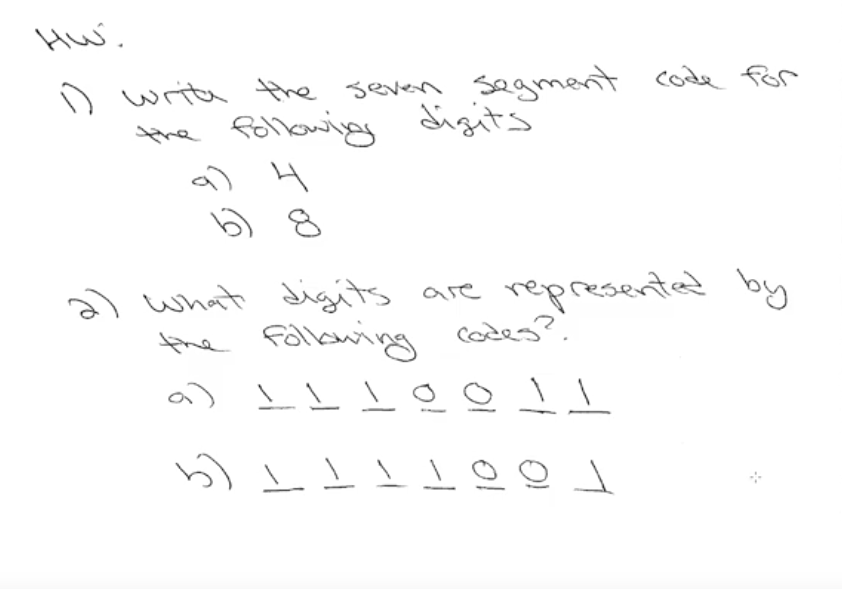 HW.
1) write the seven segment code for
the following digits
a) 4
b) 8
2) what digits are represented by
the following codes?.
a) 1 1 1 0 0 1 1
b) 1 1 1 1 0 0 1